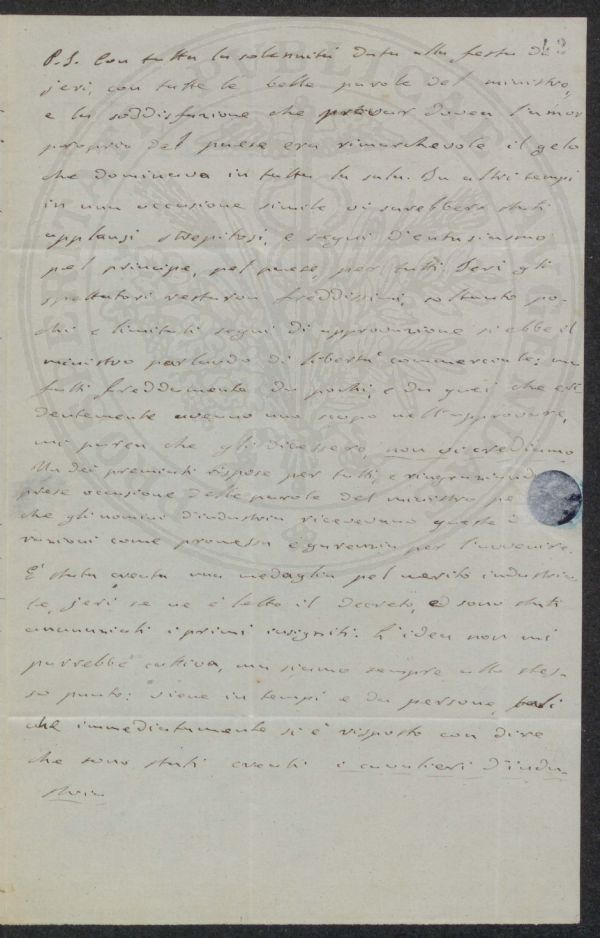 P.S. Con tutta la solennità data alla festa di
jeri, con tutte le belle parole del ministro,
e la soddisfazione che provar dovea l'amor
proprio del paese era rimarchevole il gelo
che dominava in tutta la sala. In altri tempi
in una occasione simile vi sarebbero stati
applausi strepitosi, e segni d'entusiasmo
pel principe, pel paese, per tutti. Jeri gli
spettatori restaron freddissimi, soltanto po-
chi e limitati segni di approvazione si ebbe il
ministro parlando di libertà commerciale: ma
fatti freddamente da pochi, e da quei che evi
dentemente aveano uno scopo nell'approvare,
mi parea che gli dicessero, non vi crediamo
Un dei premiati rispose per tutti, e ringraziand
prese occasione delle parole del ministro pe
che gli uomini d'industria ricevevano queste
razioni come promessa e garenzia per l'avvenire.
E' stata creata una medaglia pel merito industria-
le, jeri se ne è letto il decreto, e sono stati
annunziati i primi insigniti. L'idea non mi
parrebbe cattiva, ma siamo sempre allo stes-
so punto: viene in tempi e da persone, tali
che immediatamente si è risposto con dire
che sono stati creati i cavalieri d'indu-
stria